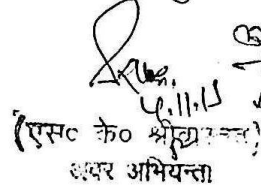 4.11.15
(एस० के० श्रीवास्तव)
अवर अभियन्ता